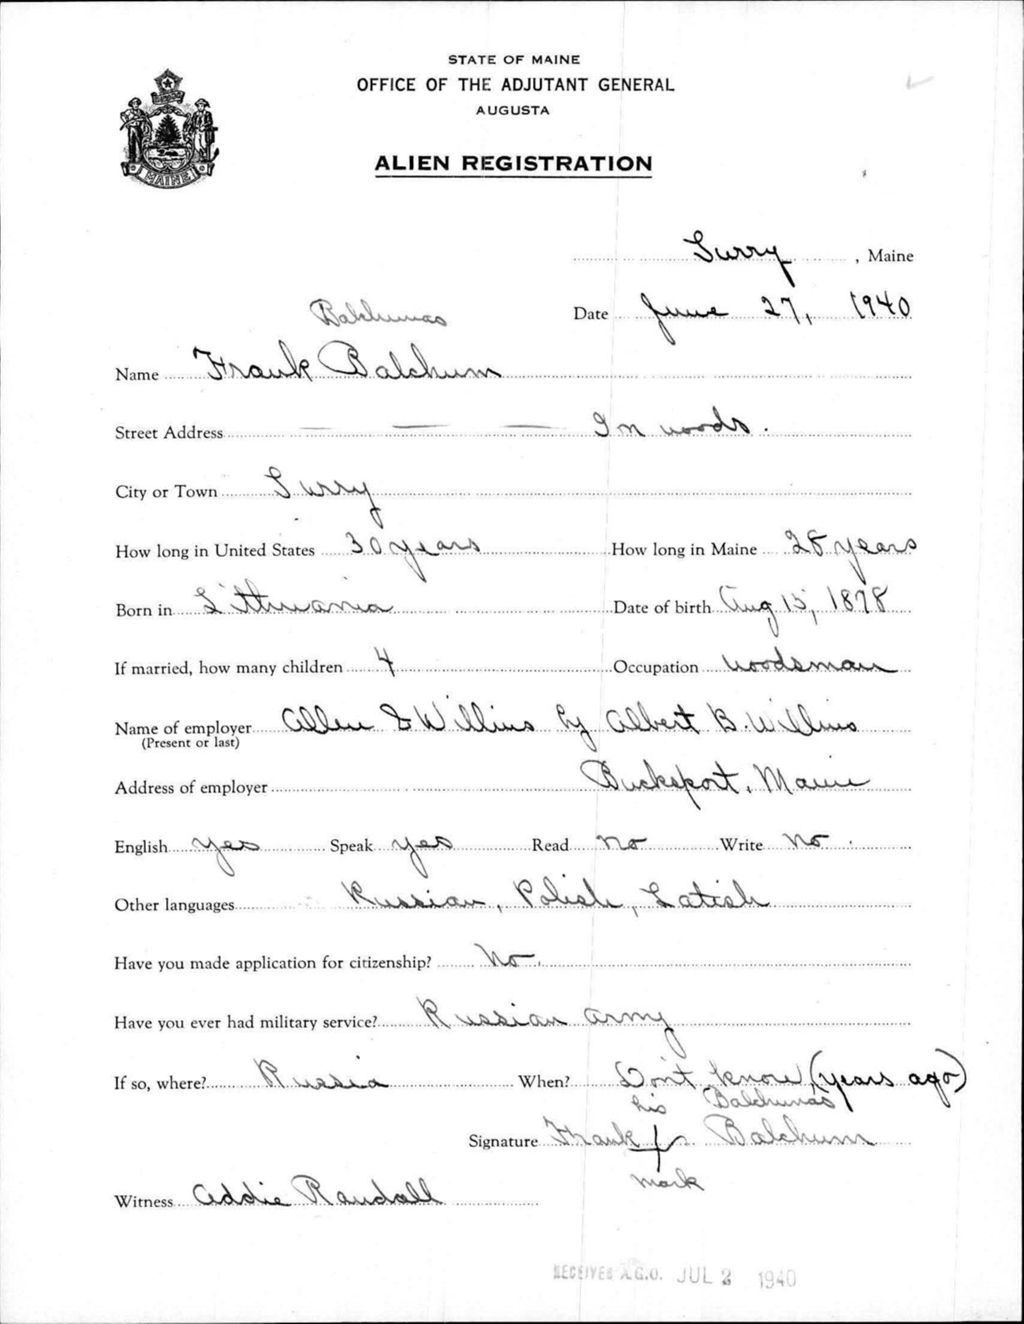 STATE OF MAINE
OFFICE OF THE ADJUTANT GENERAL
AUGUSTA
ALIEN REGISTRATION
MAINE
Surry, Maine
Date June 27, 1940
Balchunas
Name Frank Balchum
Street Address — — — In woods.
City or Town Surry
How long in United States 30 years How long in Maine 28 years
Born in Lithuania Date of birth Aug 15, 1878
If married, how many children 4 Occupation woodsman
Name of employer Allen & Willins by Albert B. Willins
(Present or last)
Address of employer Bucksport, Maine
English yes Speak yes Read no Write no.
Other languages Russian, Polish, Latish
Have you made application for citizenship? No.
Have you ever had military service? Russian army
If so, where? Russia When? Don't know, (years ago)
his Balchunas
Signature Frank + Balchum
mark
Witness Addie Randall
RECEIVED A.G.O. JUL 2 1940